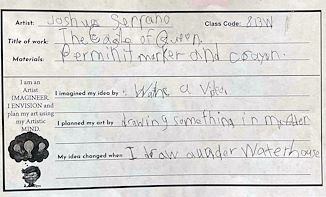 Artist: Joshua Serrano Class Code: 813W
Title of work: The Castle of Queen
Materials: Perminit marker and crayon.
I am an
Artist
IMAGINEER.
I ENVISION and
plan my art using
my Artistic
MIND.
I imagined my idea by: Wahc a video
I planned my art by drawing something in marker
My idea changed when I draw a under Waterhouse